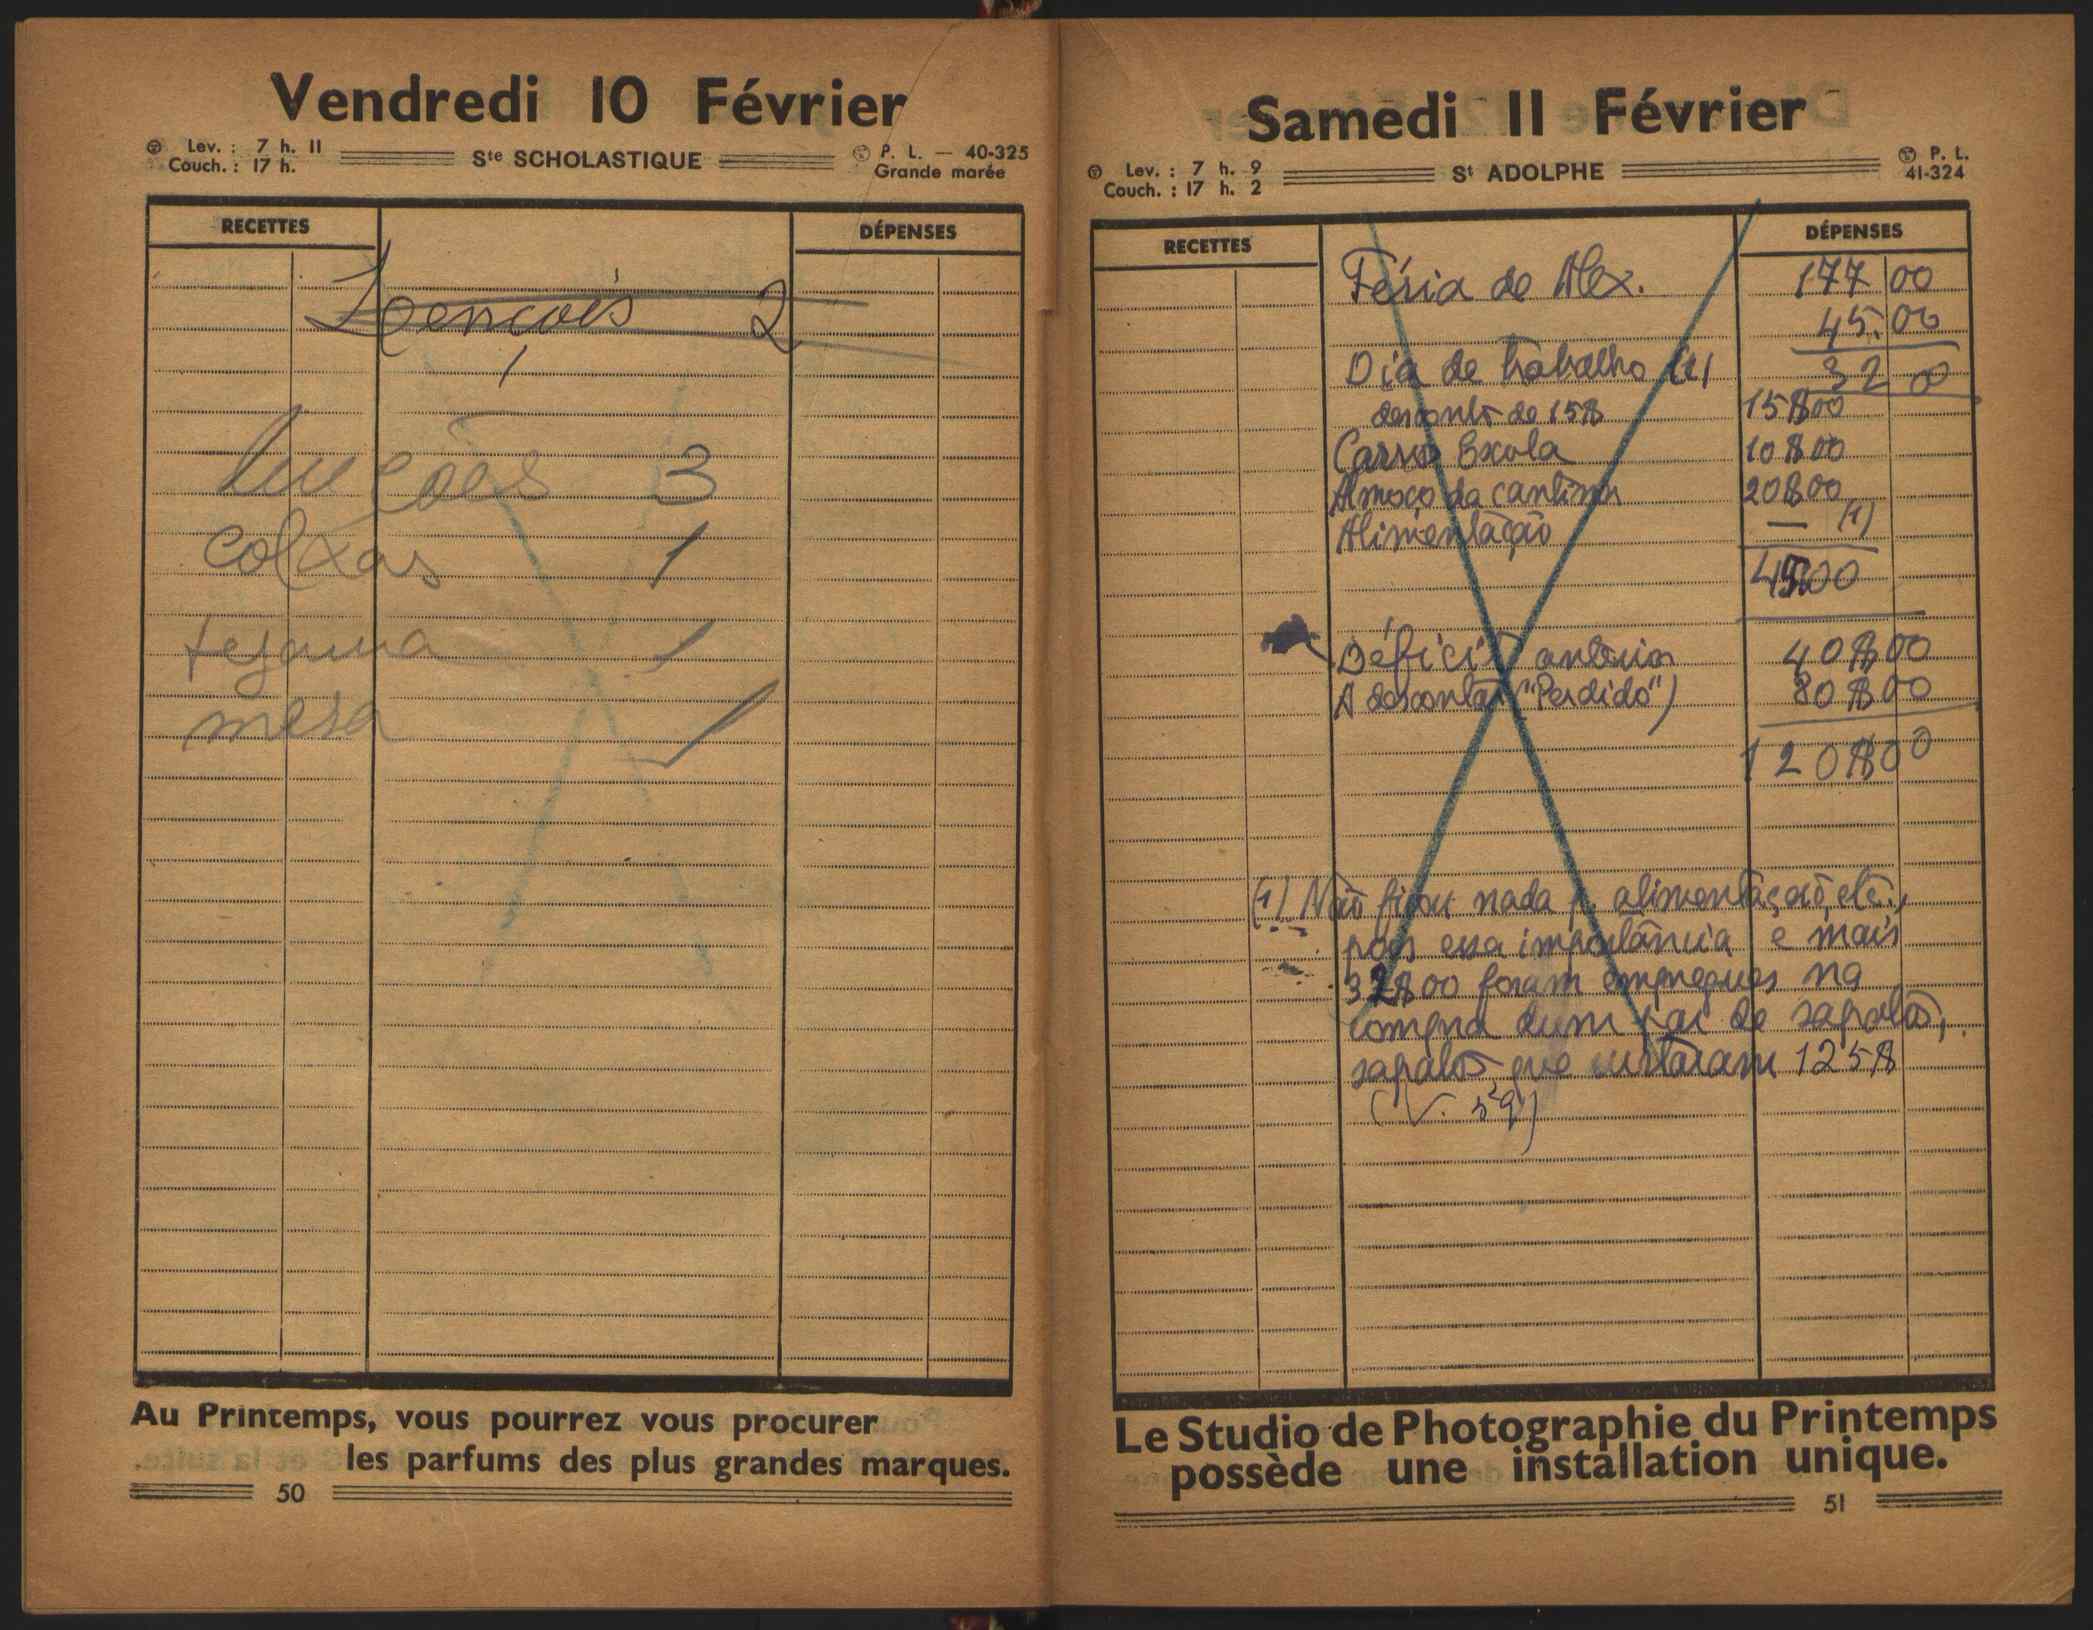 Vendredi 10 Février
Lev. : 7 h. 11
Couch. : 17 h.
Ste SCHOLASTIQUE
P. L. — 40-325
Grande marée
RECETTES
DÉPENSES
Lençois 2
1
Lençoes 3
colxas 1
1
mesa 1
Au Printemps, vous pourrez vous procurer
les parfums des plus grandes marques.
50
Samedi 11 Février
Lev. : 7 h. 9
Couch. : 17 h. 2
St ADOLPHE
P. L.
41-324
RECETTES
DÉPENSES
Féria de Alex. 177 00
45.00
Dia de trabalho (1) 32 00
desconto de 15$ 15$00
Carro Escola 10$00
Almoço da cantina 20$00
Alimentação — (1)
45$00
Déficit anterior 40$00
A descontar ("Perdido") 80$00
120$00
(1) Não ficou nada p. alimentação, etc.,
pois essa importância e mais
32$00 foram empregues na
compra dum par de sapatos,
sapatos que custaram 125$
(V.
Le Studio de Photographie du Printemps
possède une installation unique.
51